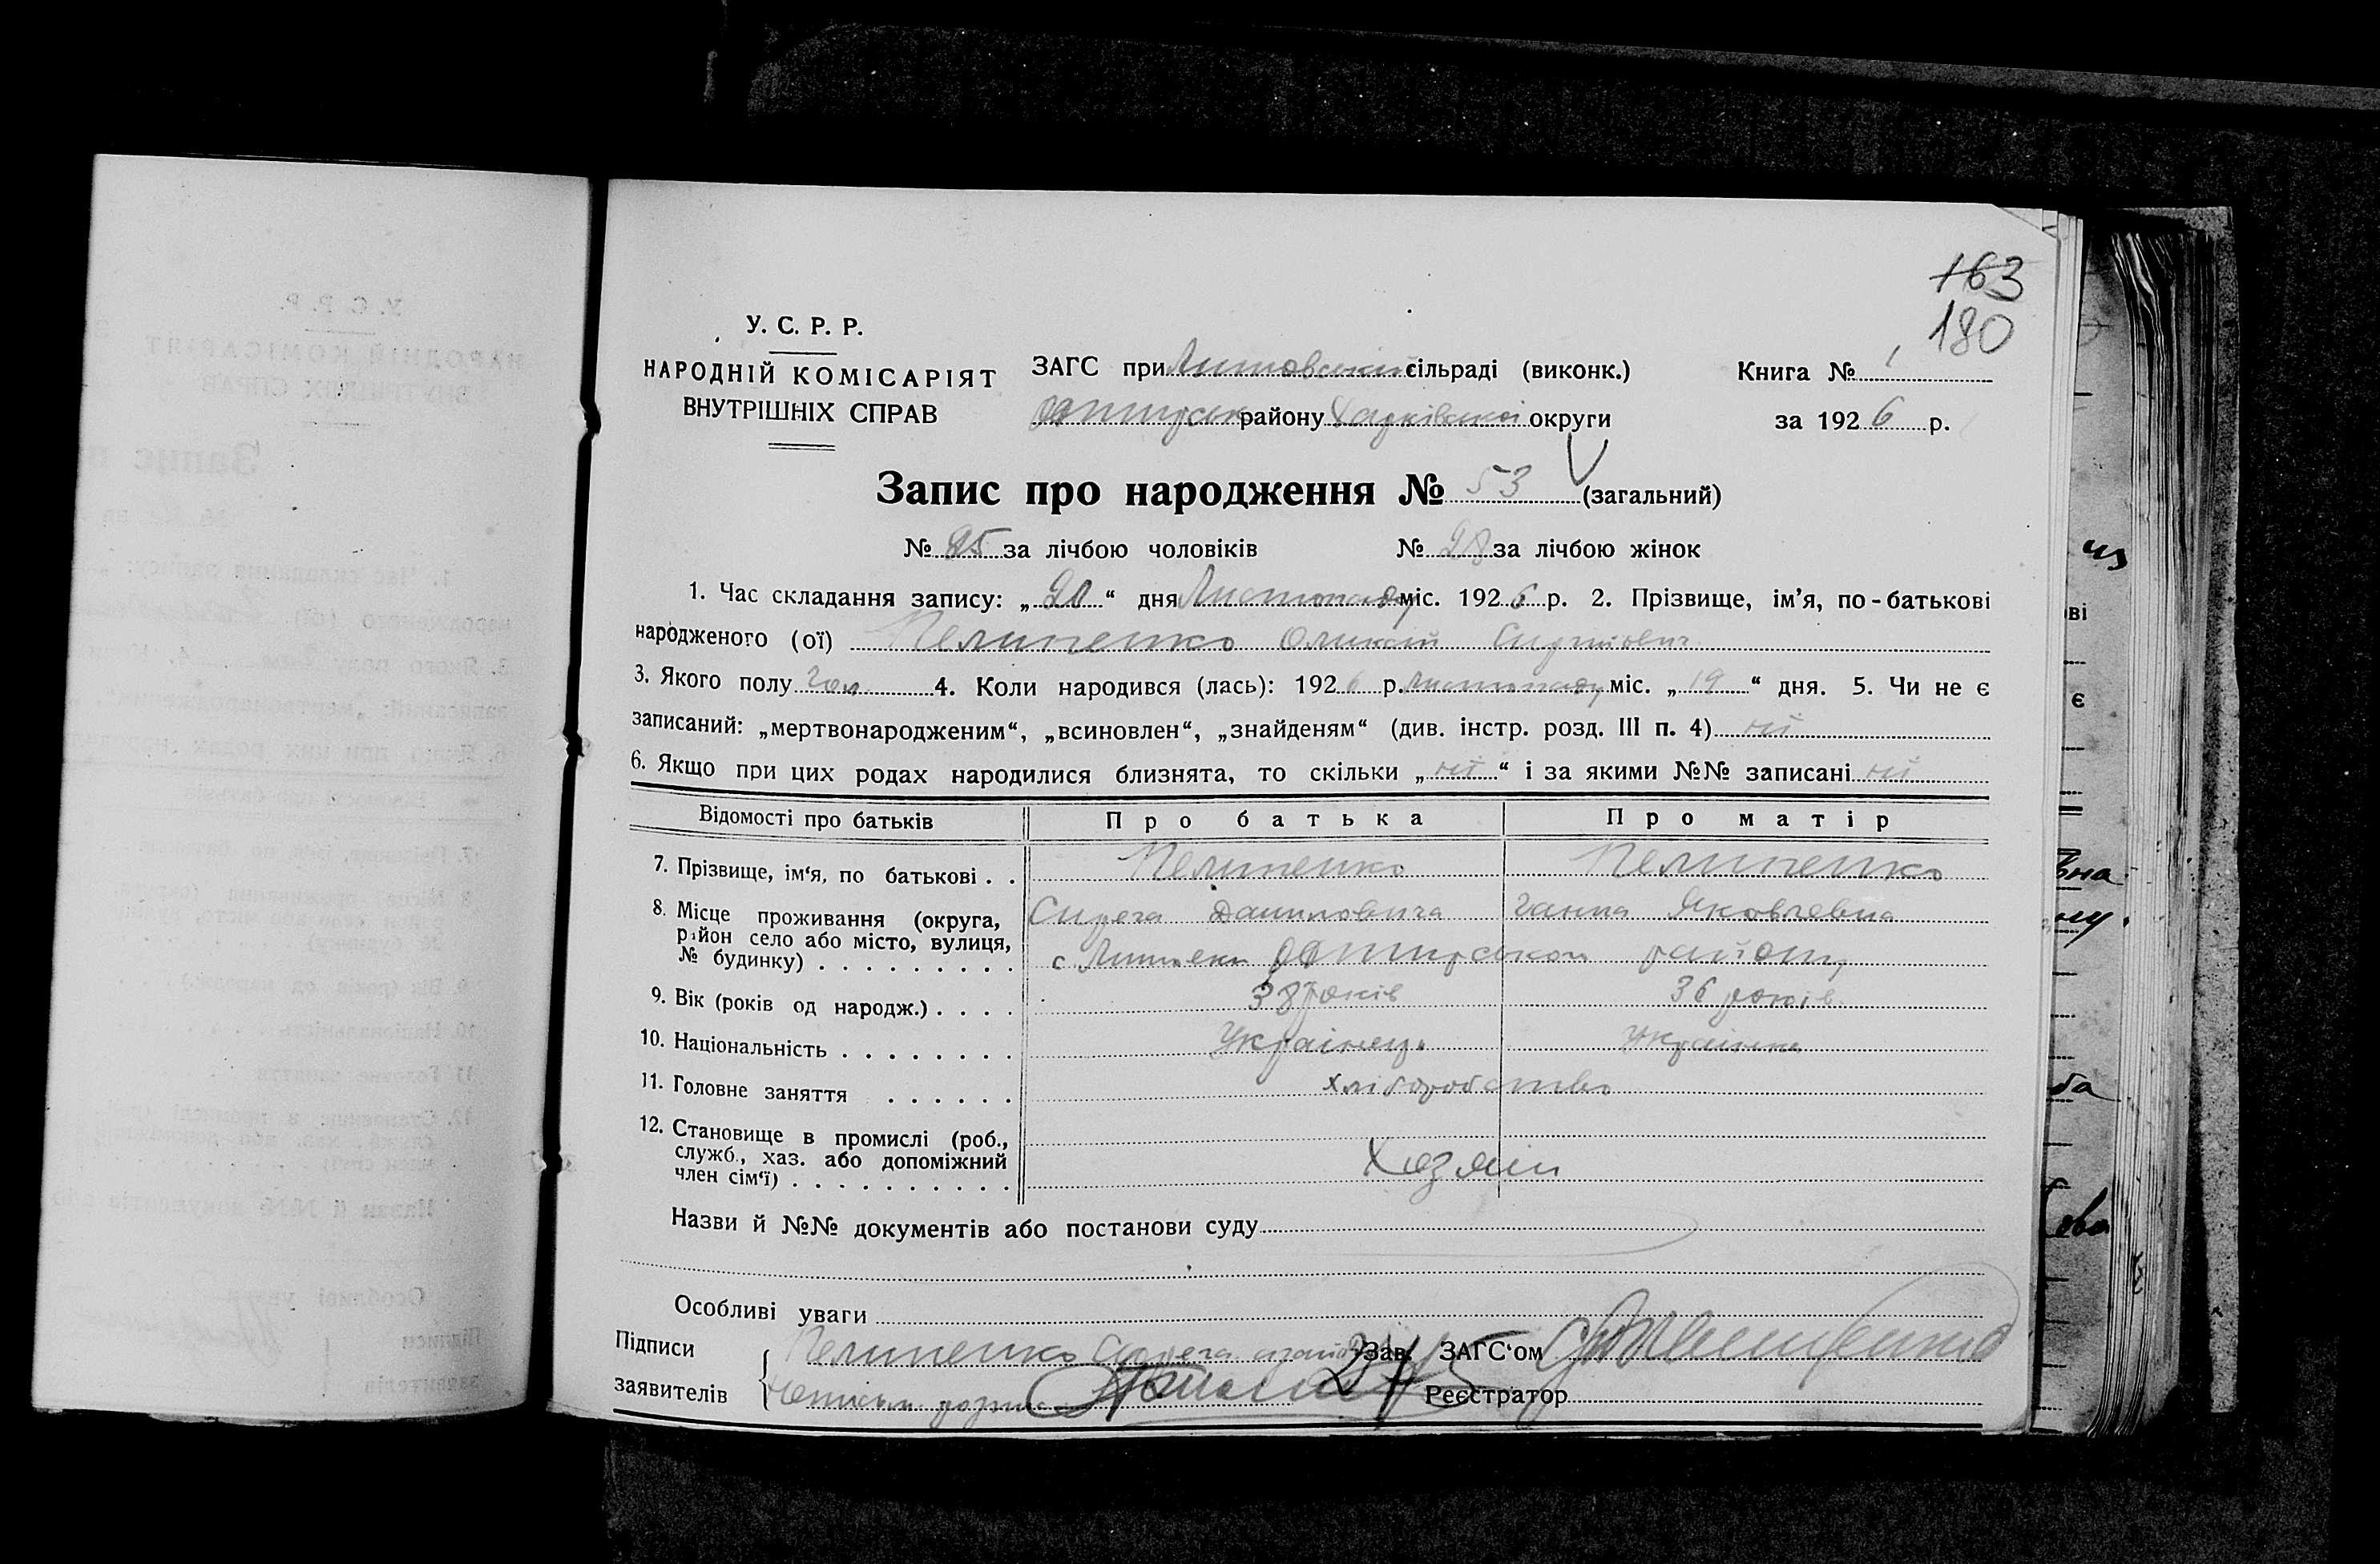 163
180
У. С. Р. Р.
НАРОДНІЙ КОМІСАРІЯТ
ВНУТРІШНІХ СПРАВ
ЗАГС при сільраді (виконк.)
району Харківської округи
Книга № 1
за 1926 р.
Запис про народження № 53 (загальний)
№ 25 за лічбою чоловіків № 28 за лічбою жінок
1. Час складання запису: „20“ дня Листопаду міс. 1926 р. 2. Прізвище, ім’я, по-батькові
народженого (ої) Пелипенко Олексій
3. Якого полу Чол. 4. Коли народився (лась): 1926 р. листопаду міс. „19“ дня. 5. Чи не є
записаний: „мертвонародженим“, „всиновлен“, „знайденям“ (див. інстр. розд. III п. 4) ні
6. Якщо при цих родах народилися близнята, то скільки „ні“ і за якими №№ записані ні
Відомості про батьків Про батька Про матір
7. Прізвище, ім‘я, по батькові . . Пелипенко Пелипенко
8. Місце проживання (округа, Данилович Ганна Яковлевна
район село або місто, вулиця,
№ будинку) . . . . . . . . . с. району
9. Вік (років од народж.) . . . . 38 років 36 років
10. Національність . . . . . . . . Українець Українка
11. Головне заняття . . . . . . хліборобство
12. Становище в промислі (роб.,
служб., хаз. або допоміжний Хозяін
член сім‘ї) . . . . . . . . . .
Назви й №№ документів або постанови суду
Особливі уваги
Підписи Пелипенко Зав. ЗАГС‘ом
заявителів Реєстратор